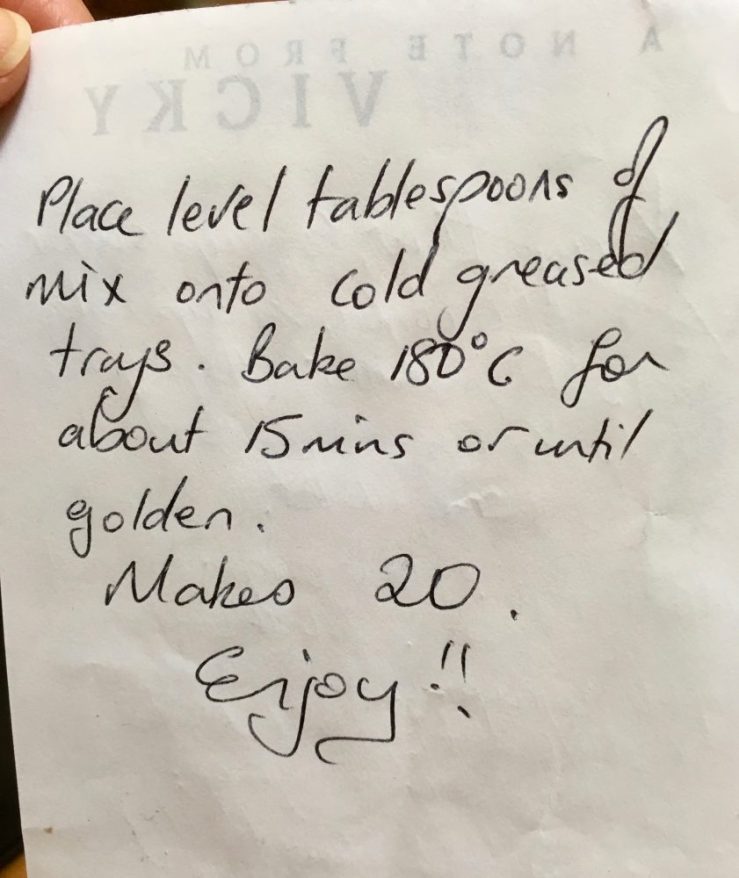 A NOTE FROM
VICKY
Place level tablespoons of
mix onto cold greased
trays. Bake 180°C for
about 15 mins or until
golden.
Makes 20.
Enjoy!!